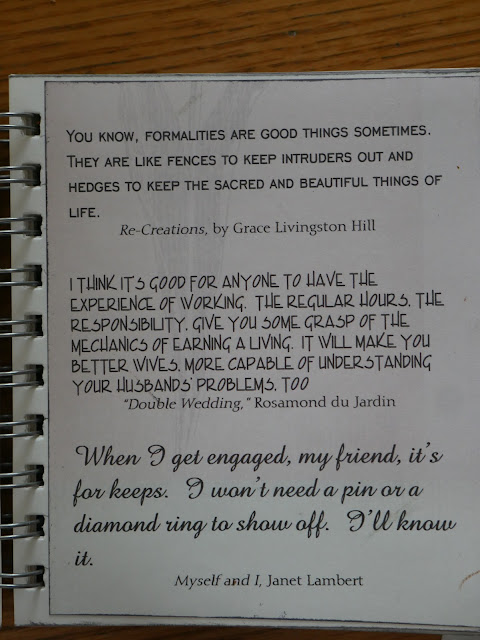 YOU KNOW, FORMALITIES ARE GOOD THINGS SOMETIMES.
THEY ARE LIKE FENCES TO KEEP INTRUDERS OUT AND
HEDGES TO KEEP THE SACRED AND BEAUTIFUL THINGS OF
LIFE.
Re-Creations, by Grace Livingston Hill
I THINK IT'S GOOD FOR ANYONE TO HAVE THE
EXPERIENCE OF WORKING. THE REGULAR HOURS, THE
RESPONSIBILITY, GIVE YOU SOME GRASP OF THE
MECHANICS OF EARNING A LIVING. IT WILL MAKE YOU
BETTER WIVES, MORE CAPABLE OF UNDERSTANDING
YOUR HUSBANDS' PROBLEMS, TOO
"Double Wedding," Rosamond du Jardin
When I get engaged, my friend, it's
for keeps. I won't need a pin or a
diamond ring to show off. I'll know
it.
Myself and I, Janet Lambert